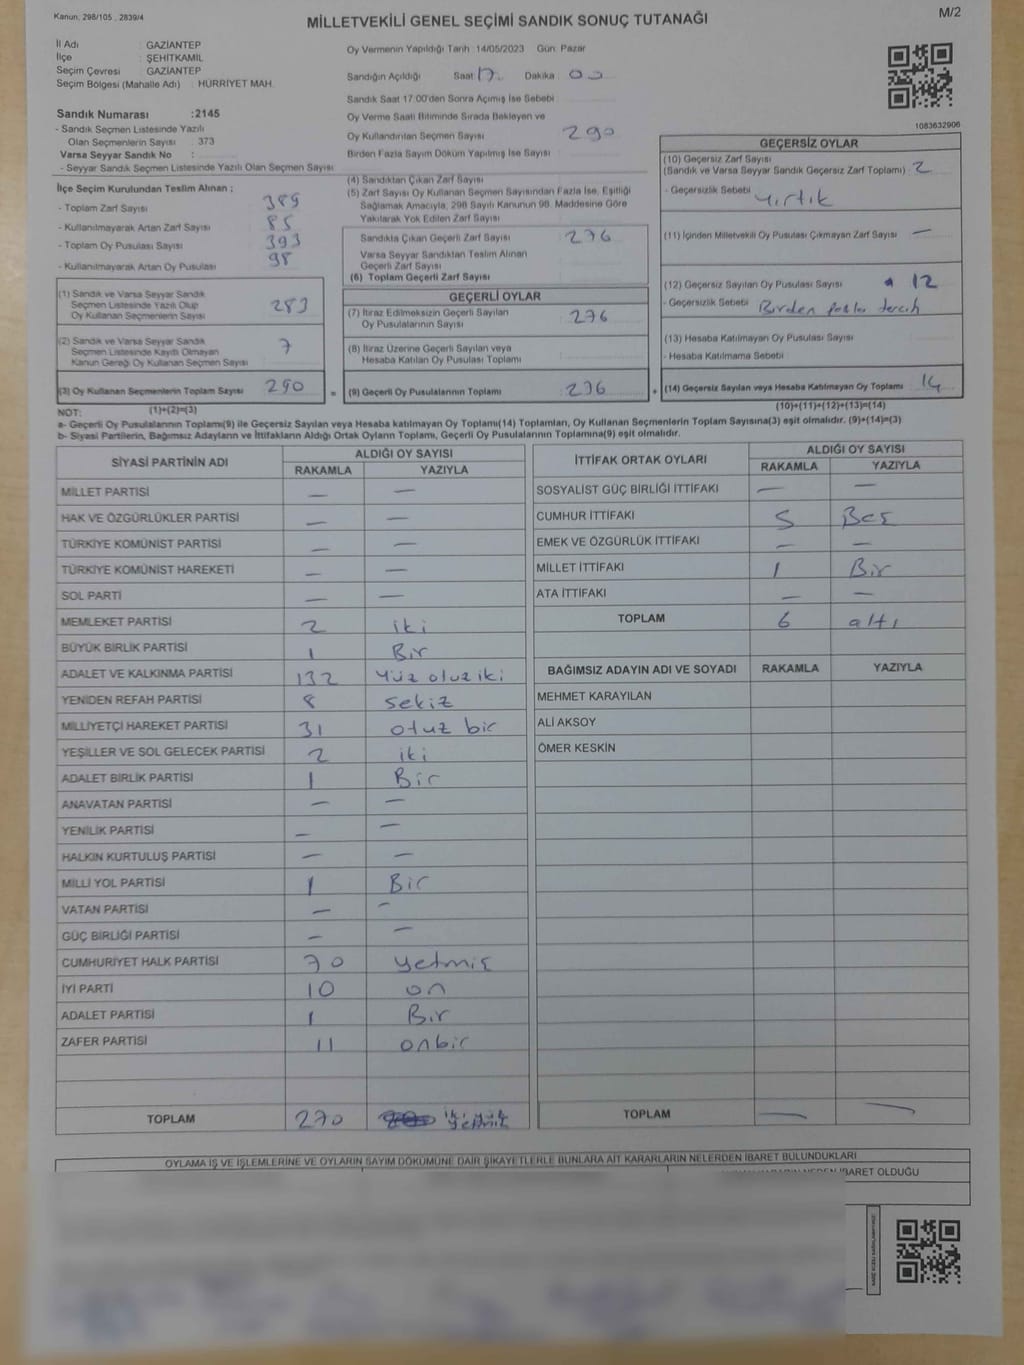 Kanun: 298/105 , 2839/4
MİLLETVEKİLİ GENEL SEÇİMİ SANDIK SONUÇ TUTANAĞI
M/2
İl Adı : GAZİANTEP
İlçe : ŞEHİTKAMİL
Seçim Çevresi : GAZİANTEP
Seçim Bölgesi (Mahalle Adı) : HÜRRİYET MAH.
Sandık Numarası :2145
- Sandık Seçmen Listesinde Yazılı
Olan Seçmenlerin Sayısı : 373
Varsa Seyyar Sandık No :
- Seyyar Sandık Seçmen Listesinde Yazılı Olan Seçmen Sayısı
Oy Vermenin Yapıldığı Tarih : 14/05/2023 Gün: Pazar
Sandığın Açıldığı Saat 17 Dakika 00
Sandık Saat 17:00'den Sonra Açımış İse Sebebi
Oy Verme Saati Bitiminde Sırada Bekleyen ve
Oy Kullandırılan Seçmen Sayısı 290
Birden Fazla Sayım Döküm Yapılmış İse Sayısı
1083632906
İlçe Seçim Kurulundan Teslim Alınan ;
- Toplam Zarf Sayısı 389
- Kullanılmayarak Artan Zarf Sayısı 85
- Toplam Oy Pusulası Sayısı 393
- Kullanılmayarak Artan Oy Pusulası 98
(1) Sandık ve Varsa Seyyar Sandık
Seçmen Listesinde Yazılı Olup
Oy Kullanan Seçmenlerin Sayısı 283
(2) Sandık ve Varsa Seyyar Sandık
Seçmen Listesinde Kayıtlı Olmayan
Kanun Gereği Oy Kullanan Seçmen Sayısı 7
(3) Oy Kullanan Seçmenlerin Toplam Sayısı 290
(1)+(2)=(3)
(4) Sandıktan Çıkan Zarf Sayısı
(5) Zarf Sayısı Oy Kullanan Seçmen Sayısından Fazla İse, Eşitliği
Sağlamak Amacıyla, 298 Sayılı Kanunun 98. Maddesine Göre
Yakılarak Yok Edilen Zarf Sayısı
Sandıkta Çıkan Geçerli Zarf Sayısı 276
Varsa Seyyar Sandıktan Teslim Alınan
Geçerli Zarf Sayısı
(6) Toplam Geçerli Zarf Sayısı
GEÇERLİ OYLAR
(7) İtiraz Edilmeksizin Geçerli Sayılan
Oy Pusulalarının Sayısı 276
(8) İtiraz Üzerine Geçerli Sayılan veya
Hesaba Katılan Oy Pusulası Toplamı
= (9) Geçerli Oy Pusulalarının Toplamı 276 +
GEÇERSİZ OYLAR
(10) Geçersiz Zarf Sayısı
(Sandık ve Varsa Seyyar Sandık Geçersiz Zarf Toplamı) 2
- Geçersizlik Sebebi Yırtık
(11) İçinden Milletvekili Oy Pusulası Çıkmayan Zarf Sayısı —
(12) Geçersiz Sayılan Oy Pusulası Sayısı 12
- Geçersizlik Sebebi Birden fazla tercih
(13) Hesaba Katılmayan Oy Pusulası Sayısı
- Hesaba Katılmama Sebebi
(14) Geçersiz Sayılan veya Hesaba Katılmayan Oy Toplamı 14
(10)+(11)+(12)+(13)=(14)
NOT:
a- Geçerli Oy Pusulalarının Toplamı(9) ile Geçersiz Sayılan veya Hesaba katılmayan Oy Toplamı(14) Toplamları, Oy Kullanan Seçmenlerin Toplam Sayısına(3) eşit olmalıdır. (9)+(14)=(3)
b- Siyasi Partilerin, Bağımsız Adayların ve İttifakların Aldığı Ortak Oyların Toplamı, Geçerli Oy Pusulalarının Toplamına(9) eşit olmalıdır.
SİYASİ PARTİNİN ADI ALDIĞI OY SAYISI
RAKAMLA YAZIYLA
MİLLET PARTİSİ — —
HAK VE ÖZGÜRLÜKLER PARTİSİ — —
TÜRKİYE KOMÜNİST PARTİSİ — —
TÜRKİYE KOMÜNİST HAREKETİ — —
SOL PARTİ — —
MEMLEKET PARTİSİ 2 iki
BÜYÜK BİRLİK PARTİSİ 1 Bir
ADALET VE KALKINMA PARTİSİ 132 Yüz otuz iki
YENİDEN REFAH PARTİSİ 8 sekiz
MİLLİYETÇİ HAREKET PARTİSİ 31 otuz bir
YEŞİLLER VE SOL GELECEK PARTİSİ 2 iki
ADALET BİRLİK PARTİSİ 1 Bir
ANAVATAN PARTİSİ — —
YENİLİK PARTİSİ — —
HALKIN KURTULUŞ PARTİSİ — —
MİLLİ YOL PARTİSİ 1 Bir
VATAN PARTİSİ — —
GÜÇ BİRLİĞİ PARTİSİ — —
CUMHURİYET HALK PARTİSİ 70 yetmiş
İYİ PARTİ 10 on
ADALET PARTİSİ 1 Bir
ZAFER PARTİSİ 11 onbir
TOPLAM 270 iki yüz yetmiş
İTTİFAK ORTAK OYLARI ALDIĞI OY SAYISI
RAKAMLA YAZIYLA
SOSYALİST GÜÇ BİRLİĞİ İTTİFAKI — —
CUMHUR İTTİFAKI 5 Beş
EMEK VE ÖZGÜRLÜK İTTİFAKI — —
MİLLET İTTİFAKI 1 Bir
ATA İTTİFAKI — —
TOPLAM 6 altı
BAĞIMSIZ ADAYIN ADI VE SOYADI RAKAMLA YAZIYLA
MEHMET KARAYILAN
ALİ AKSOY
ÖMER KESKİN
TOPLAM — —
OYLAMA İŞ VE İŞLEMLERİNE VE OYLARIN SAYIM DÖKÜMÜNE DAİR ŞİKAYETLERLE BUNLARA AİT KARARLARIN NELERDEN İBARET BULUNDUKLARI
İBARET OLDUĞU